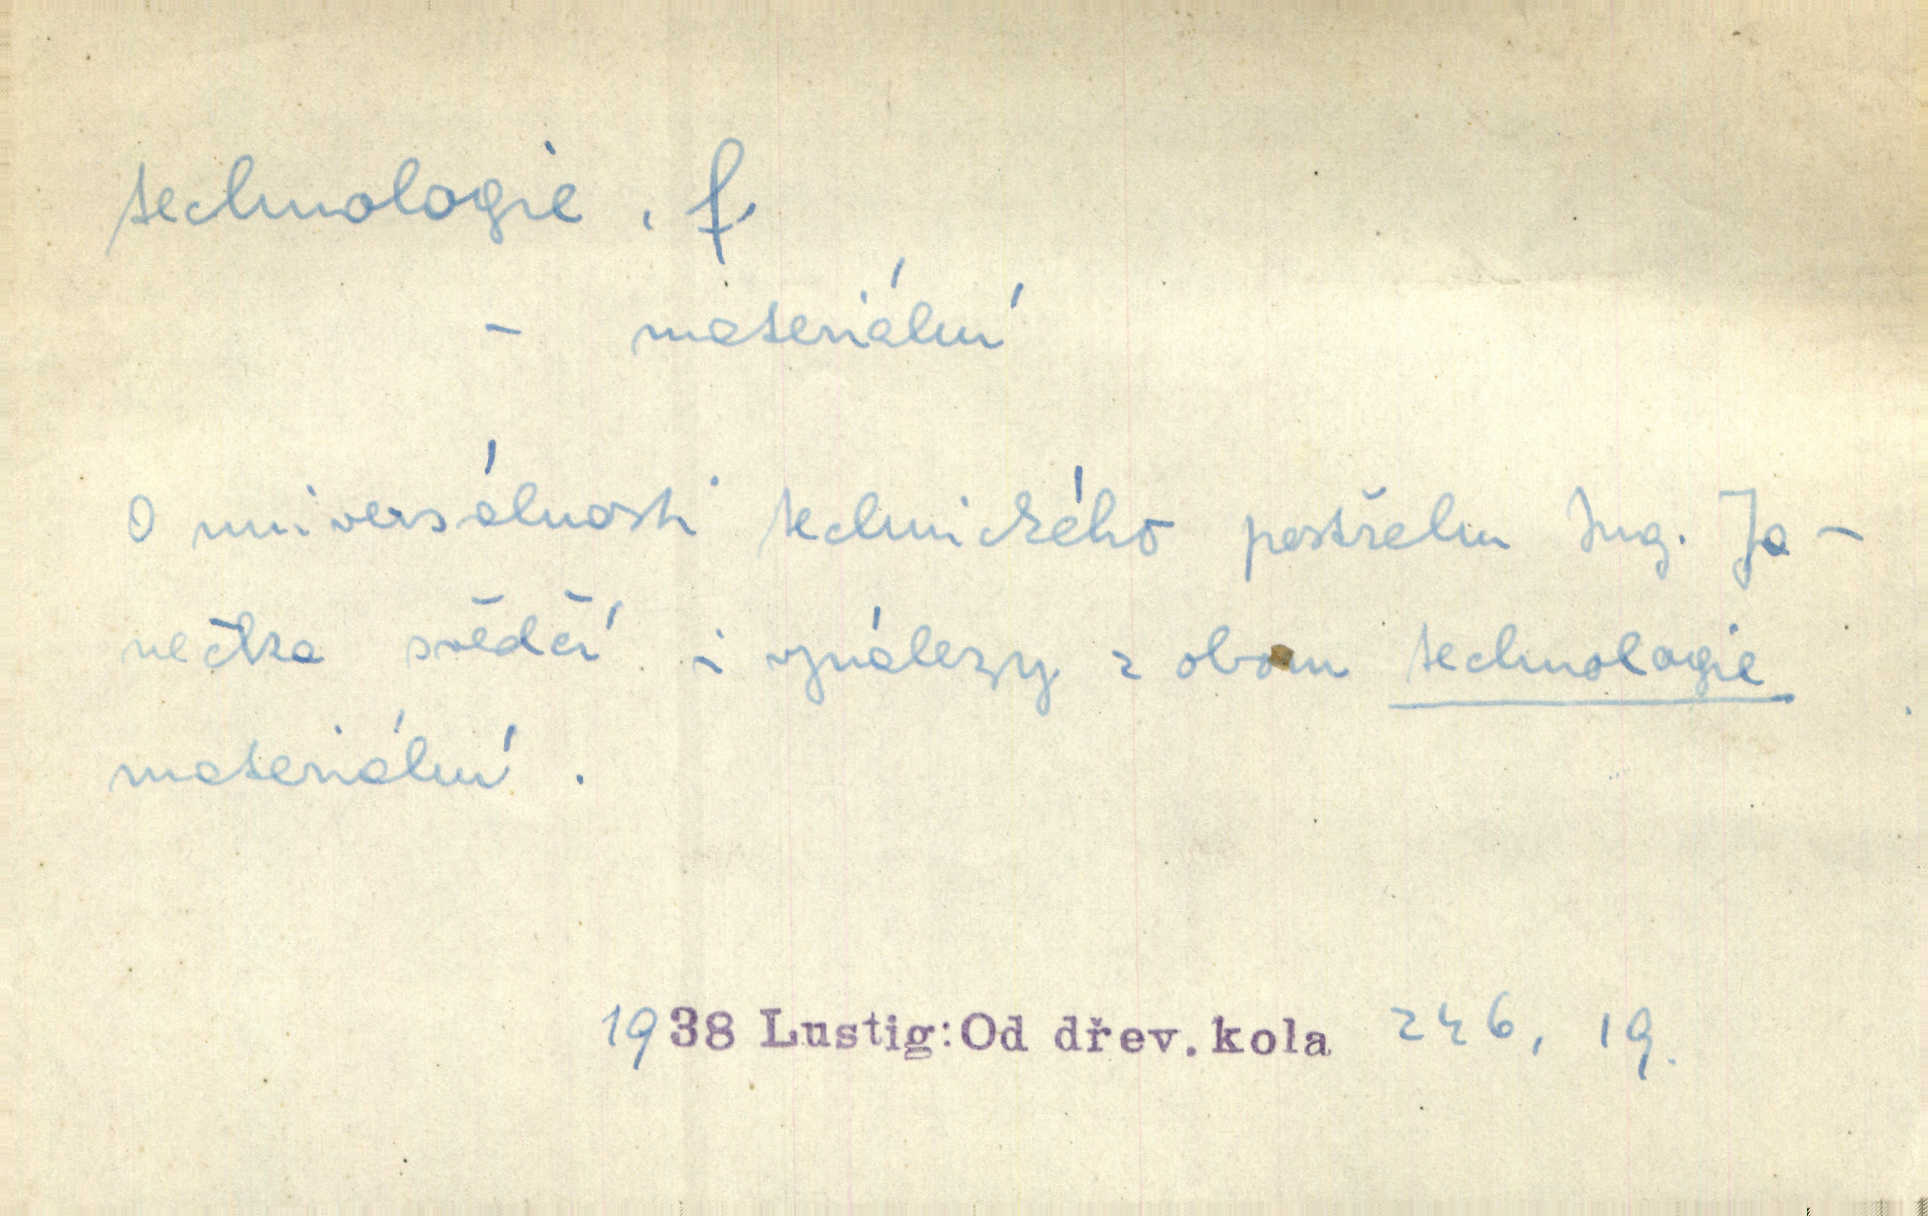 technologie, f.
- materiální
O universálnosti technického postřehu Ing. Ja-
nečka svědčí i vynálezy z oboru technologie
materiální.
1938 Lustig: Od dřev. kola 246, 19.